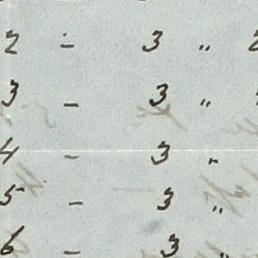 2 - 3 „ 2
3 - 3 „
4 - 3 „
5 - 3 „
6 - 3 „